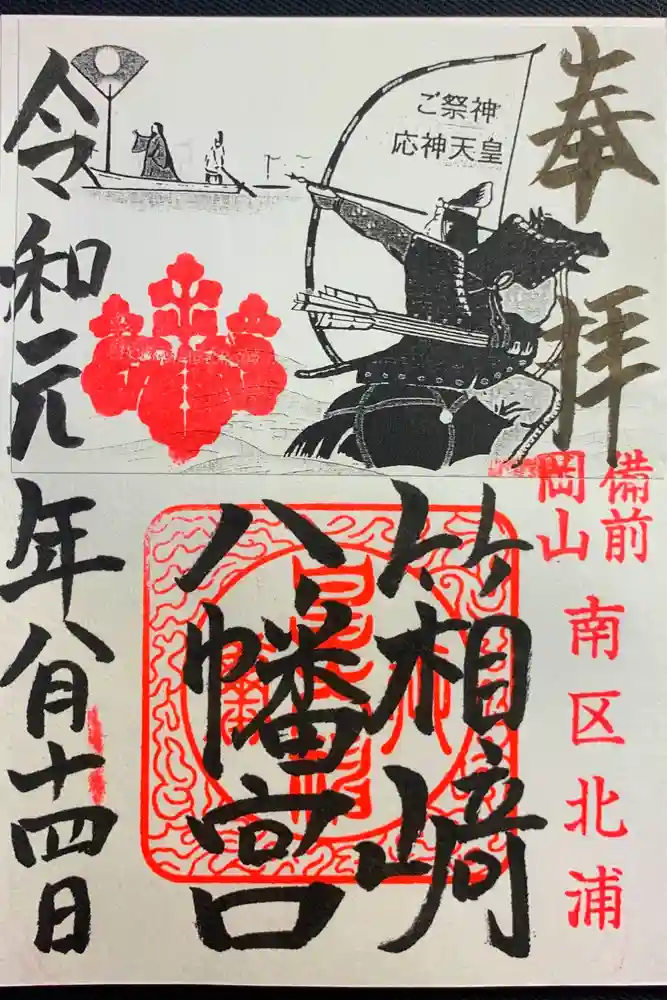 奉拝
ご祭神
応神天皇
備前
岡山
南区北浦
箱崎
八幡宮
令和元年八月十四日